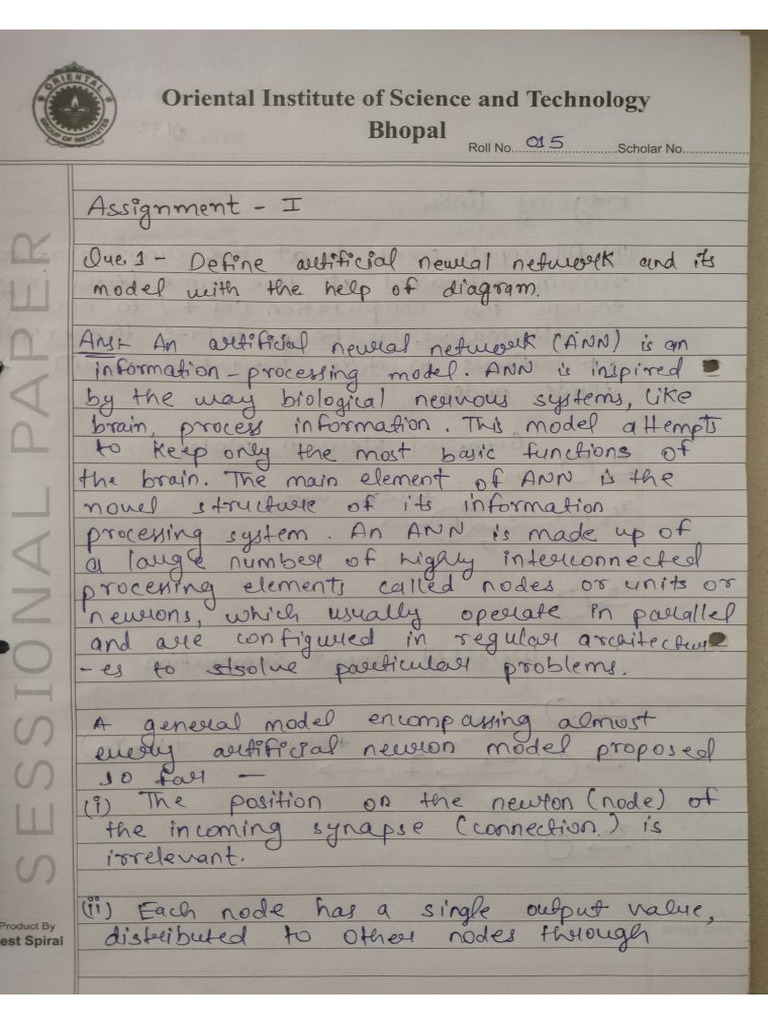 ORIENTAL
GROUP OF INSTITUTES
Oriental Institute of Science and Technology
Bhopal
Roll No...015...Scholar No.
SESSIONAL PAPER
Assignment - I
Que. 1 - Define artificial neural network and its
model with the help of diagram.
Ans:- An artificial neural network (ANN) is an
information-processing model. ANN is inspired
by the way biological nervous systems, like
brain, process information. This model attempts
to keep only the most basic functions of
the brain. The main element of ANN is the
novel structure of its information
processing system. An ANN is made up of
a large number of highly interconnected
processing elements called nodes or units or
neurons, which usually operate in parallel
and are configured in regular architectur
-es to solve particular problems.
A general model encompassing almost
every artificial neuron model proposed
so far —
(i) The position on the neuron (node) of
the incoming synapse (connection) is
irrelevant.
(ii) Each node has a single output value,
distributed to other nodes through
Product By
est Spiral